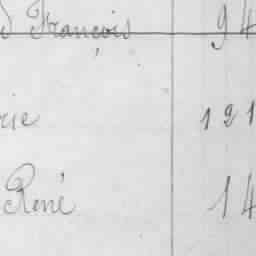 d François 94
rie 121
René 14